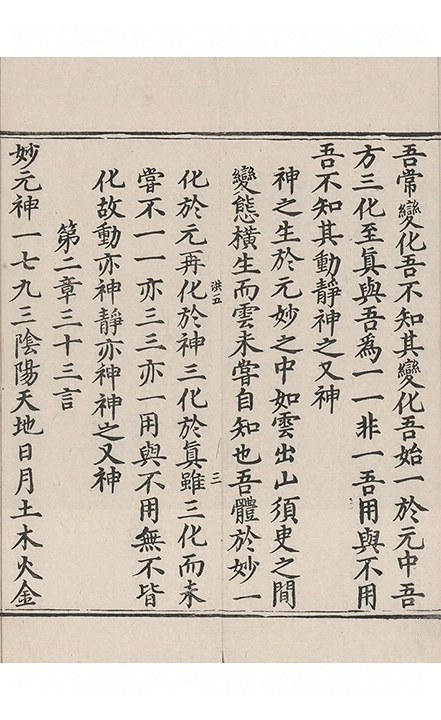 吾常變化吾不知其變化吾始一於元中吾
方三化至真與吾為一一非一吾用與不用
吾不知其動靜神之又神
神之生於元妙之中如雲出山須臾之間
變態橫生而雲未嘗自知也吾體於妙一
洪五
三
化於元再化於神三化於真雖三化而未
嘗不一一亦三三亦一用與不用無不皆
化故動亦神靜亦神神之又神
第二章三十三言
妙元神一七九三陰陽天地日月土木火金